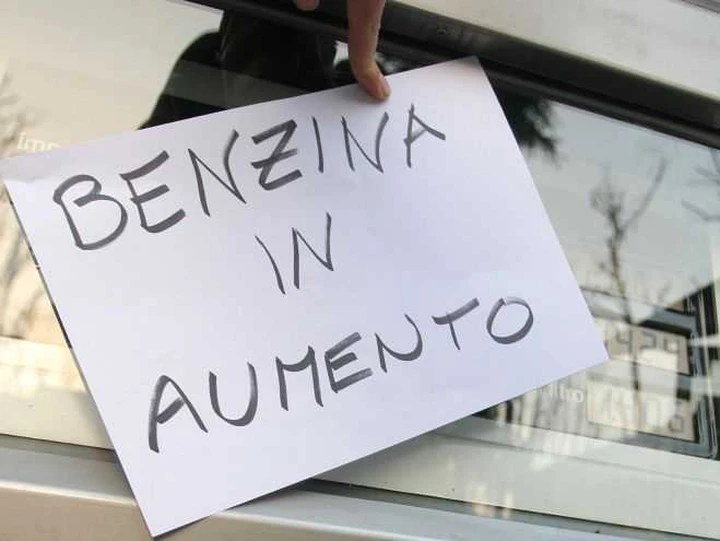 BENZINA
IN
AUMENTO